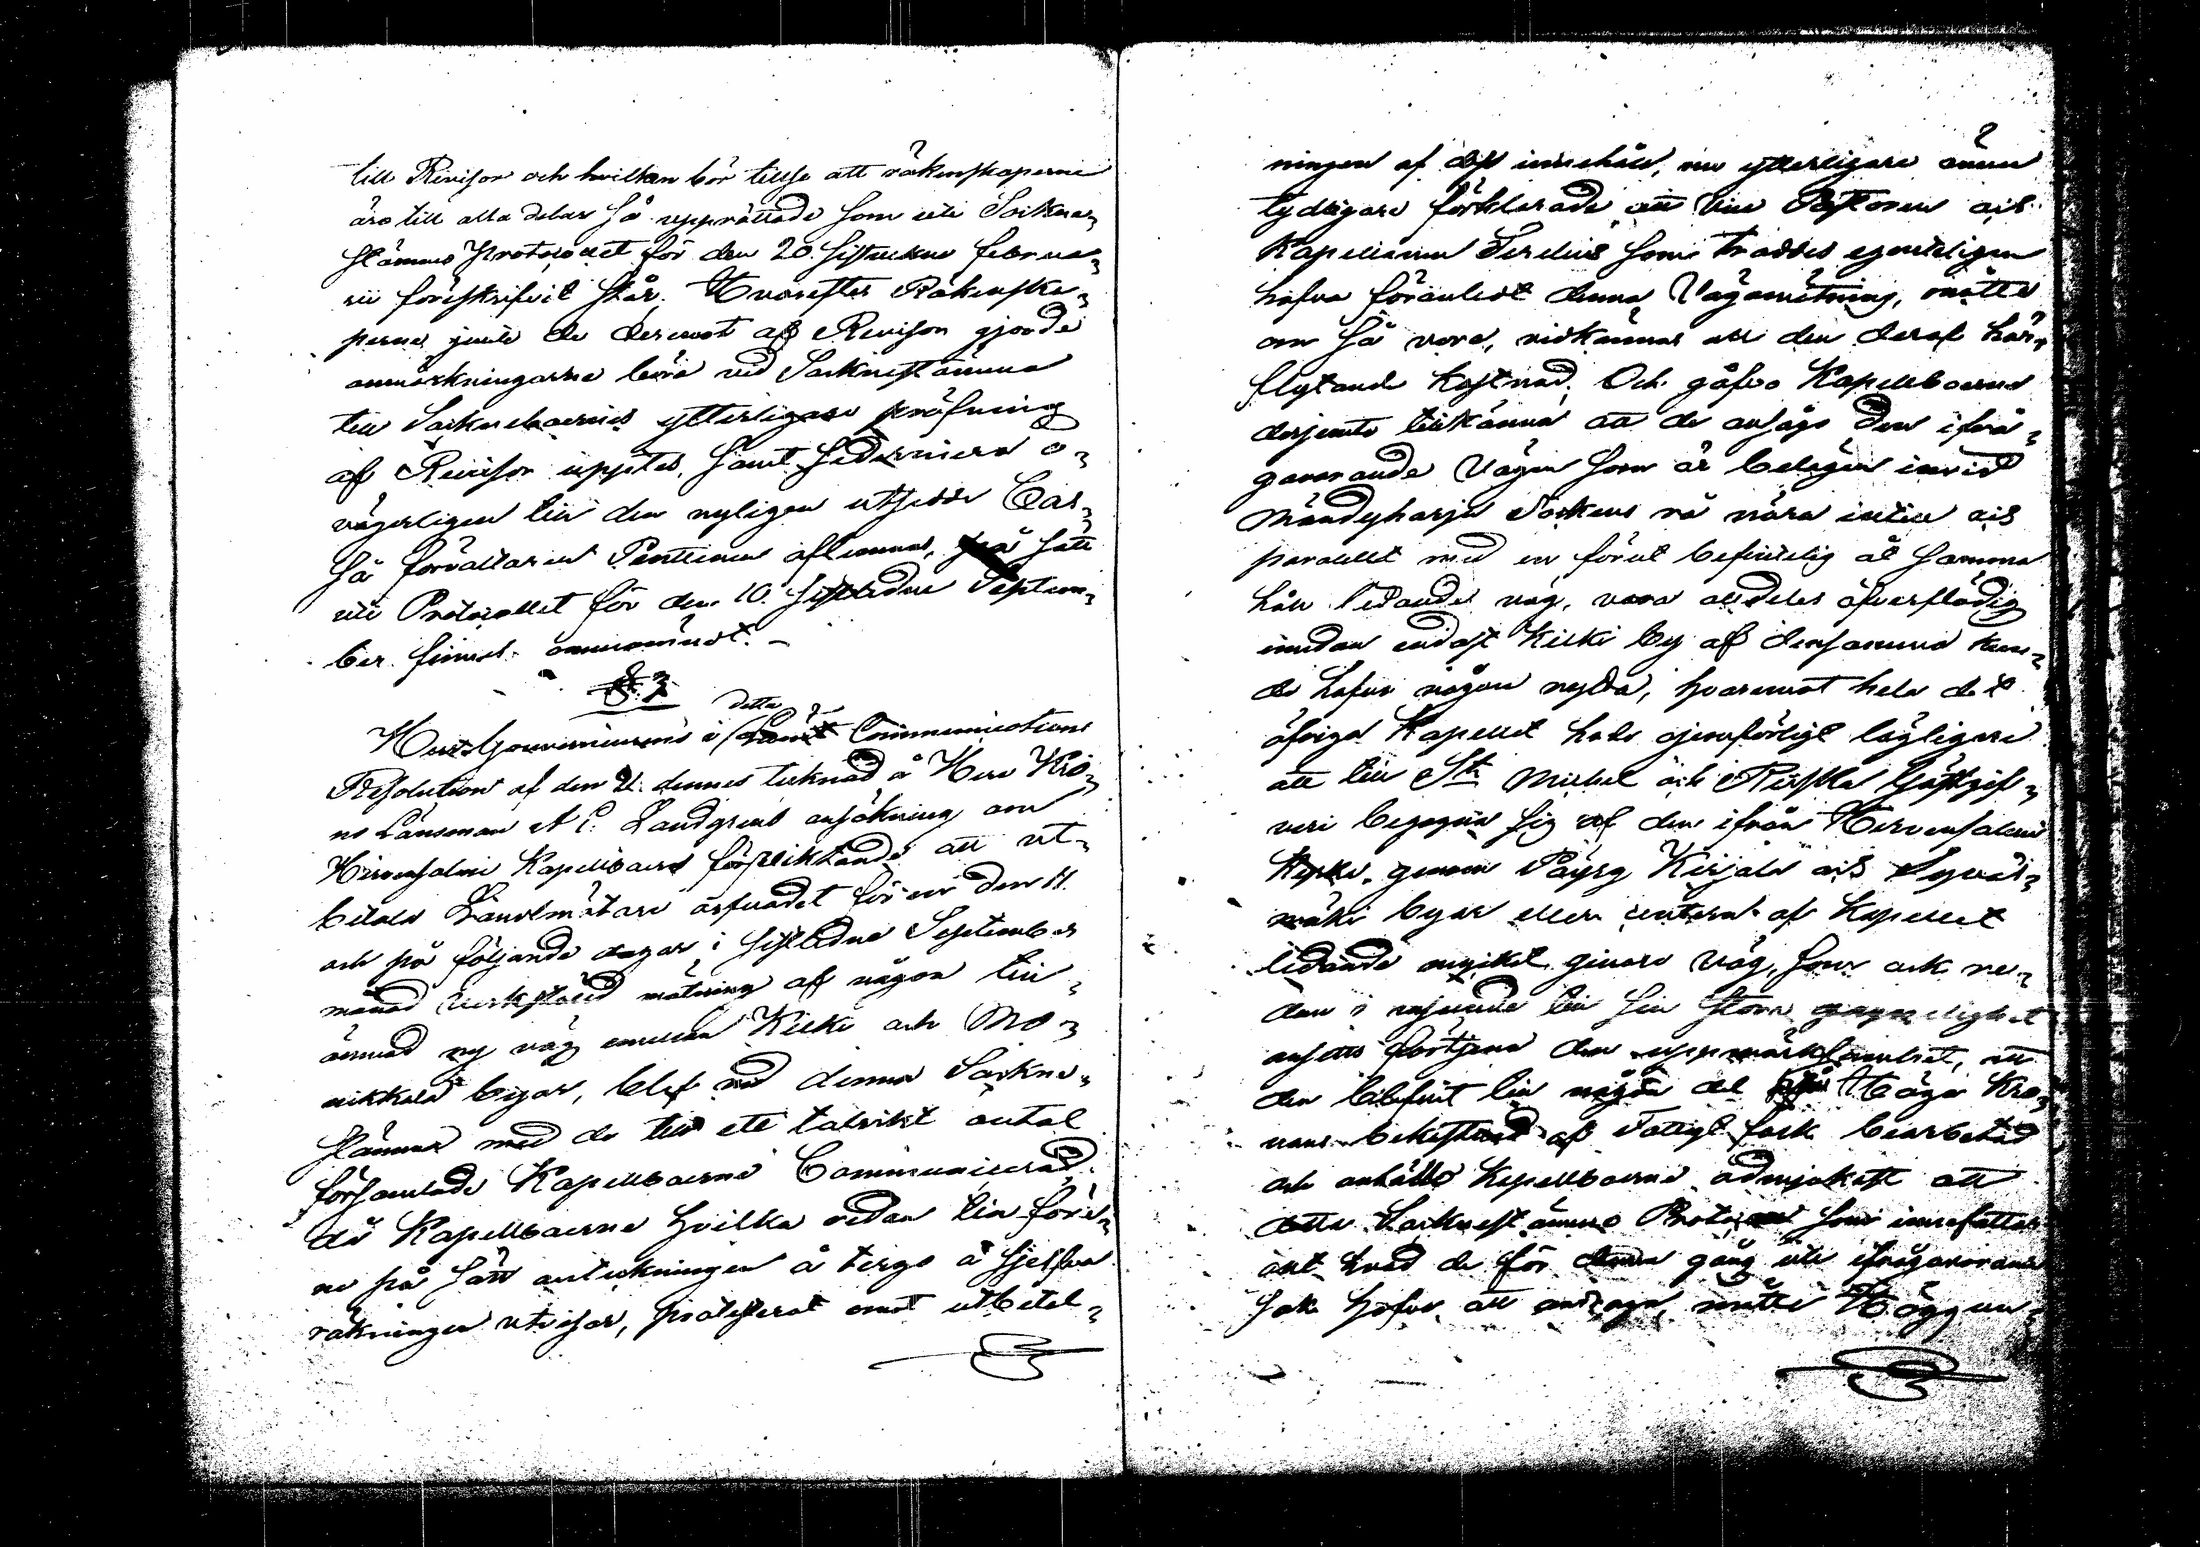 till Revisor och hvilken bör tillse att räkenskaperne
äro till alla delar så upprättade som uti Sockne=
stämmo Protocollet för den 20. sistvekne februa=
rii föreskrifvit står. Hvarefter Räkenska=
perne jemte de deremot af Revisorn gjorde
anmärkningarne böra vid Socknestämma
till Sockneboernes ytterligare pröfning
af Revisorn uppges, samt sedermera o=
vägerligen till den nyligen utsedde Cas=
sa förvaltaren Penttinen aflemnas, på sätt
uti Protocollet för den 10. sistledne Septem=
ber finnes omnämndt.
§ 3
Herr Gouverneurens i detta Communications
Resolution af den 21 dennes tecknad å Herr Kro=
no Länsman A E. Landgrens ansökning om
Hirvensalmi Kapellboers förpliktande att ut=
betala Landtmätare arfvodet för en den 11.
och på följande dagar i sistledne September
månad verkstäld mätning af någon till=
ämnad ny väg emellan Kilki och Mo=
nikkala byar, blef vid denna Sockne=
stämma med de till ett talrikt antal
församlade Kapellboerne Communicerad.
då Kapellboerne hvilka redan till före=
ne på sätt anteckningen å tergo å sjelfva
räkningen utvisar, protesterat emot utbetal=
ningen af dess innehåll, nu ytterligare ännu
tydligare förklarade att vice Pastoren och
Kapellanen Perelius som troddes egenteligen
hafva föranledt denna Vägamätning, måtte
om så vore, vidkännas all den deraf här=
flytande kostnad. Och gåfvo Kapellboerne
derjemte tillkänna att de ansågo den ifrå=
gavarande Vägen som är belägen invid
Mändyharju Sockens rå nära intill och
paralelt med en förut befintelig åt samma
håll ledande väg, vara alldeles öfverflödig
emedan endast Kilki by af densamma kun=
de hafva någon nytta, hvaremot hela det
öfriga Kapellet hade ojemförligt lägligare
att till St. Michel och Ristila Gästgif=
veri begagna sig af den ifrån Hirvensalmi
Kyrka genom Pöyry Kirjala och
mäki byar eller centern af Kapellet
ledande mycket genare väg, som ock re=
dan i anseende till sin stora
ansetts förtjena den uppmärksamhet, att
den blifvit till någon del Höga Kro=
nans bekostnad af fattigt folk bearbetad
och anhålla Kapellboerne ödmjukast att
detta Socknestämmo Protocoll som innefattar
allt hvad de för denna gång uti ifrågavarande
sak hafva att andraga, måtte Höggun=